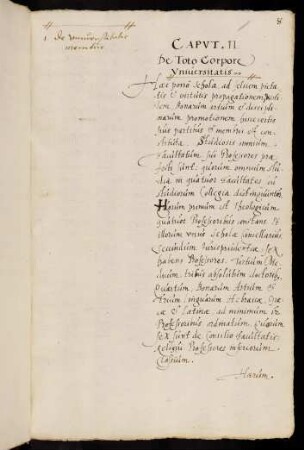 8
1. De Vniuersitatis
CAPVT. II.
De Toto Corpore
Vniuersitatis.
Hæc porrò Schola, ad eiusmodi pieta-
tis et virtutis propagationem
bonarum artium et discipli-
narum promotionem
suis partibus et membris
Studiosis omnium
Facultatum, sui Professores præ-
fecti sunt, quorum omnium stu-
dia, in quatuor Facultates seu
Studiorum Collegia distinguuntur.
Horum primum est Theologicum,
quatuor Professoribus constans
illorum verò Scholæ Cancellarius.
Secundum Jurisprudentiæ, sex
habens Professores. Tertium Me-
dicum, tribus absolvitur doctoribus,
Quartum, Bonarum Artium et
Linguarum Hebraicæ, Græ-
cæ et Latinæ, ad minimum
Professoribus ordinatum, quorum
sex sunt de Consilio Facultatis,
reliqui Professores inferiorum
Classium.
Harum.